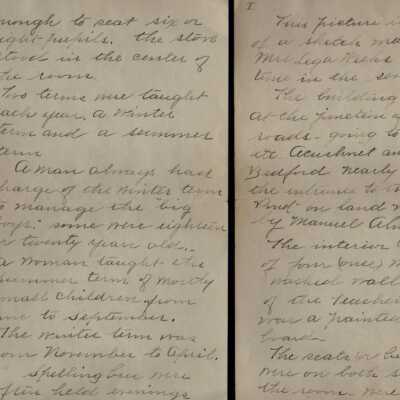 nough to seat six or
ight pupils. the stove
tood in the center of
the room.
Two terms were taught
each year. a winter
term and a summer
term
A man always had
harge of the winter term
to manage the "big
boys." some were eighteen
r twenty year old.
a woman taught the
summer term of mostly
small children from
une to september.
The winter term was
rom November to April.
spelling bees were
ften held evenings
I
This picture i
of a sketch ma
Mrs Lega
time in the
The building
At the junction of
roads- going to
etc Acushnet an
Bedford nearly
the entrance to
on land
by Manuel
The interior
of four (once)
washed wall
of the Teacher
was a painte
board.
The seats or be
were on both s
the room. were